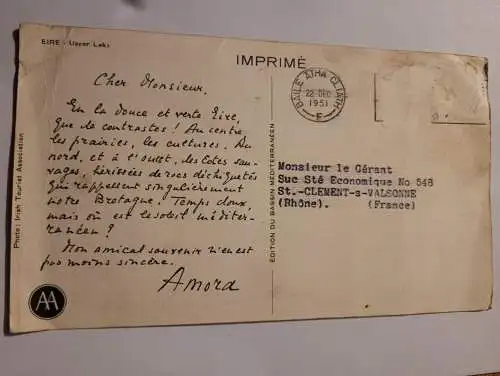 EIRE - Usear Lake
IMPRIMÉ
Cher Monsieur,
En la douce et verte Eire,
que de contrastes! Au centre
les prairies, les cultures. Au
nord, et à l'ouest, des côtes sau-
vages, hérissées de rocs déchiquetés
qui rappellent singulièrement
notre Bretagne. Temps doux,
mais où est le soleil méditer-
ranéen?
Mon amical souvenir n'en est
pas moins sincère.
Amora
AA
Photo: Irish Tourist Association
ÉDITION DU BASSIN MÉDITERRANÉEN
BAILE ÁTHA CLIATH
22 DEC
1951
E
Monsieur le Gérant
Suc Sté Economique No 548
St.-CLEMENT-s-VALSONNE
(Rhône). (France)